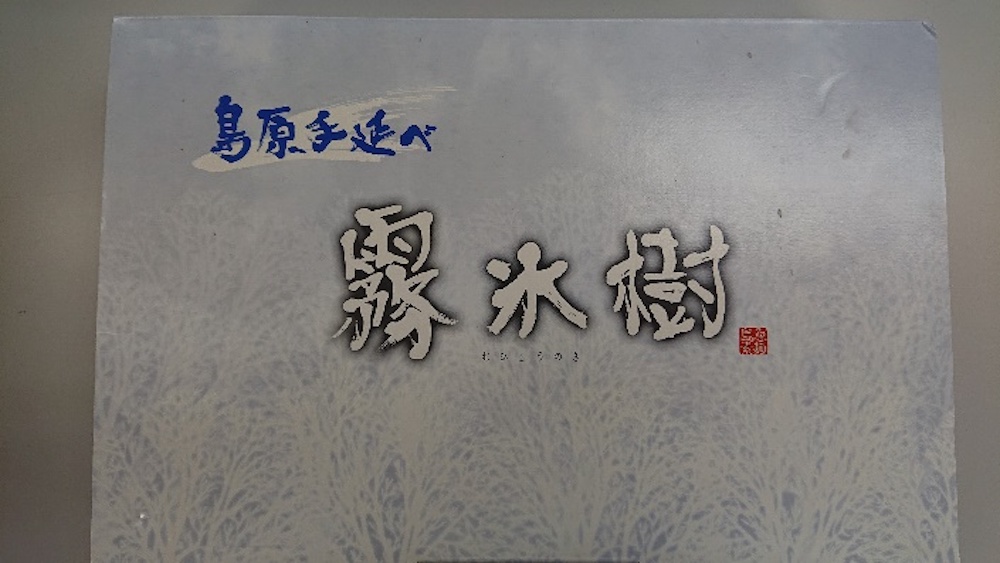 島原手延べ
霧氷樹
むひょうのき